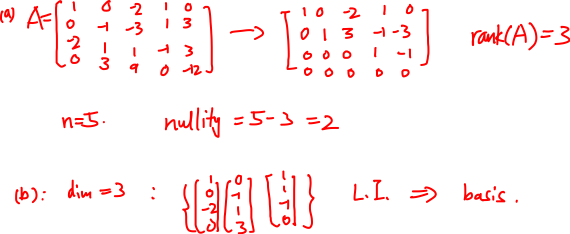 (a) A = [1 0 -2 1 0; 0 -1 -3 1 3; -2 1 1 -1 3; 0 3 9 0 -12] → [1 0 -2 1 0; 0 1 3 -1 -3; 0 0 0 1 -1; 0 0 0 0 0] rank(A)=3
n=5. nullity = 5-3 = 2
(b): dim = 3 : {[1 0 -2 0] [0 -1 1 3] [1 1 -1 0]} L.I. ⇒ basis.